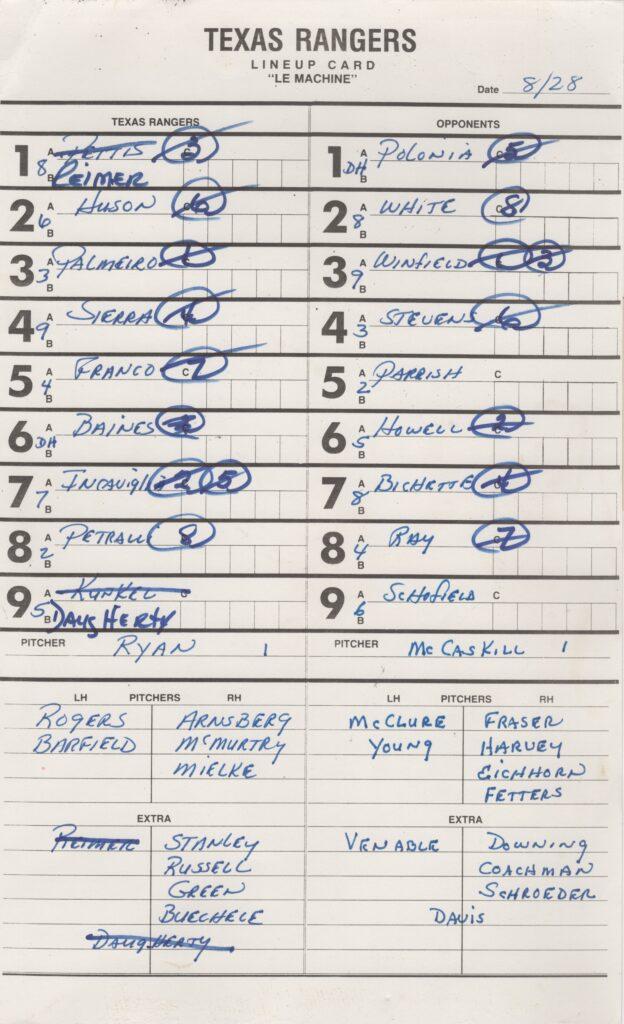 TEXAS RANGERS
LINEUP CARD
"LE MACHINE"
Date 8/28
TEXAS RANGERS OPPONENTS
1 A B 8 Pettis C 3 Reimer
1 A B DH Polonia C 5
2 A B 6 Huson C 6
2 A B 8 White C 8
3 A B 3 Palmeiro C
3 A B 9 Winfield C 3
4 A B 9 Sierra C
4 A B 3 Stevens C 6
5 A B 4 Franco C 7
5 A B 2 Parrish C
6 A B DH Baines C
6 A B 5 Howell C 2
7 A B 7 Incavigl C 2 5
7 A B 8 Bichette C 4
8 A B 2 Petrall C 8
8 A B 4 Ray C 7
9 A B 5 Kunkel C Daugherty
9 A B 6 Schofield C
PITCHER Ryan 1 PITCHER McCaskill 1
LH PITCHERS RH LH PITCHERS RH
Rogers Arnsberg McClure Fraser
Barfield McMurtry Young Harvey
Mielke Eichhorn
Fetters
EXTRA EXTRA
Reimer Stanley Venable Downing
Russell Coachman
Green Schroeder
Buechele Davis
Daugherty